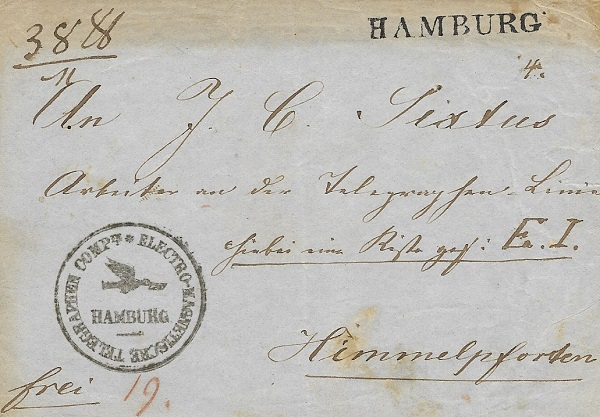 HAMBURG
4.
An J. C. Sixtus
Arbeiter an der Telegraphen-Linie
hiebei eine Kiste gez: E. I.
ELECTRO-MAGNETISCHE TELEGRAPHEN COMP
HAMBURG
Himmelpforten
frei 19.